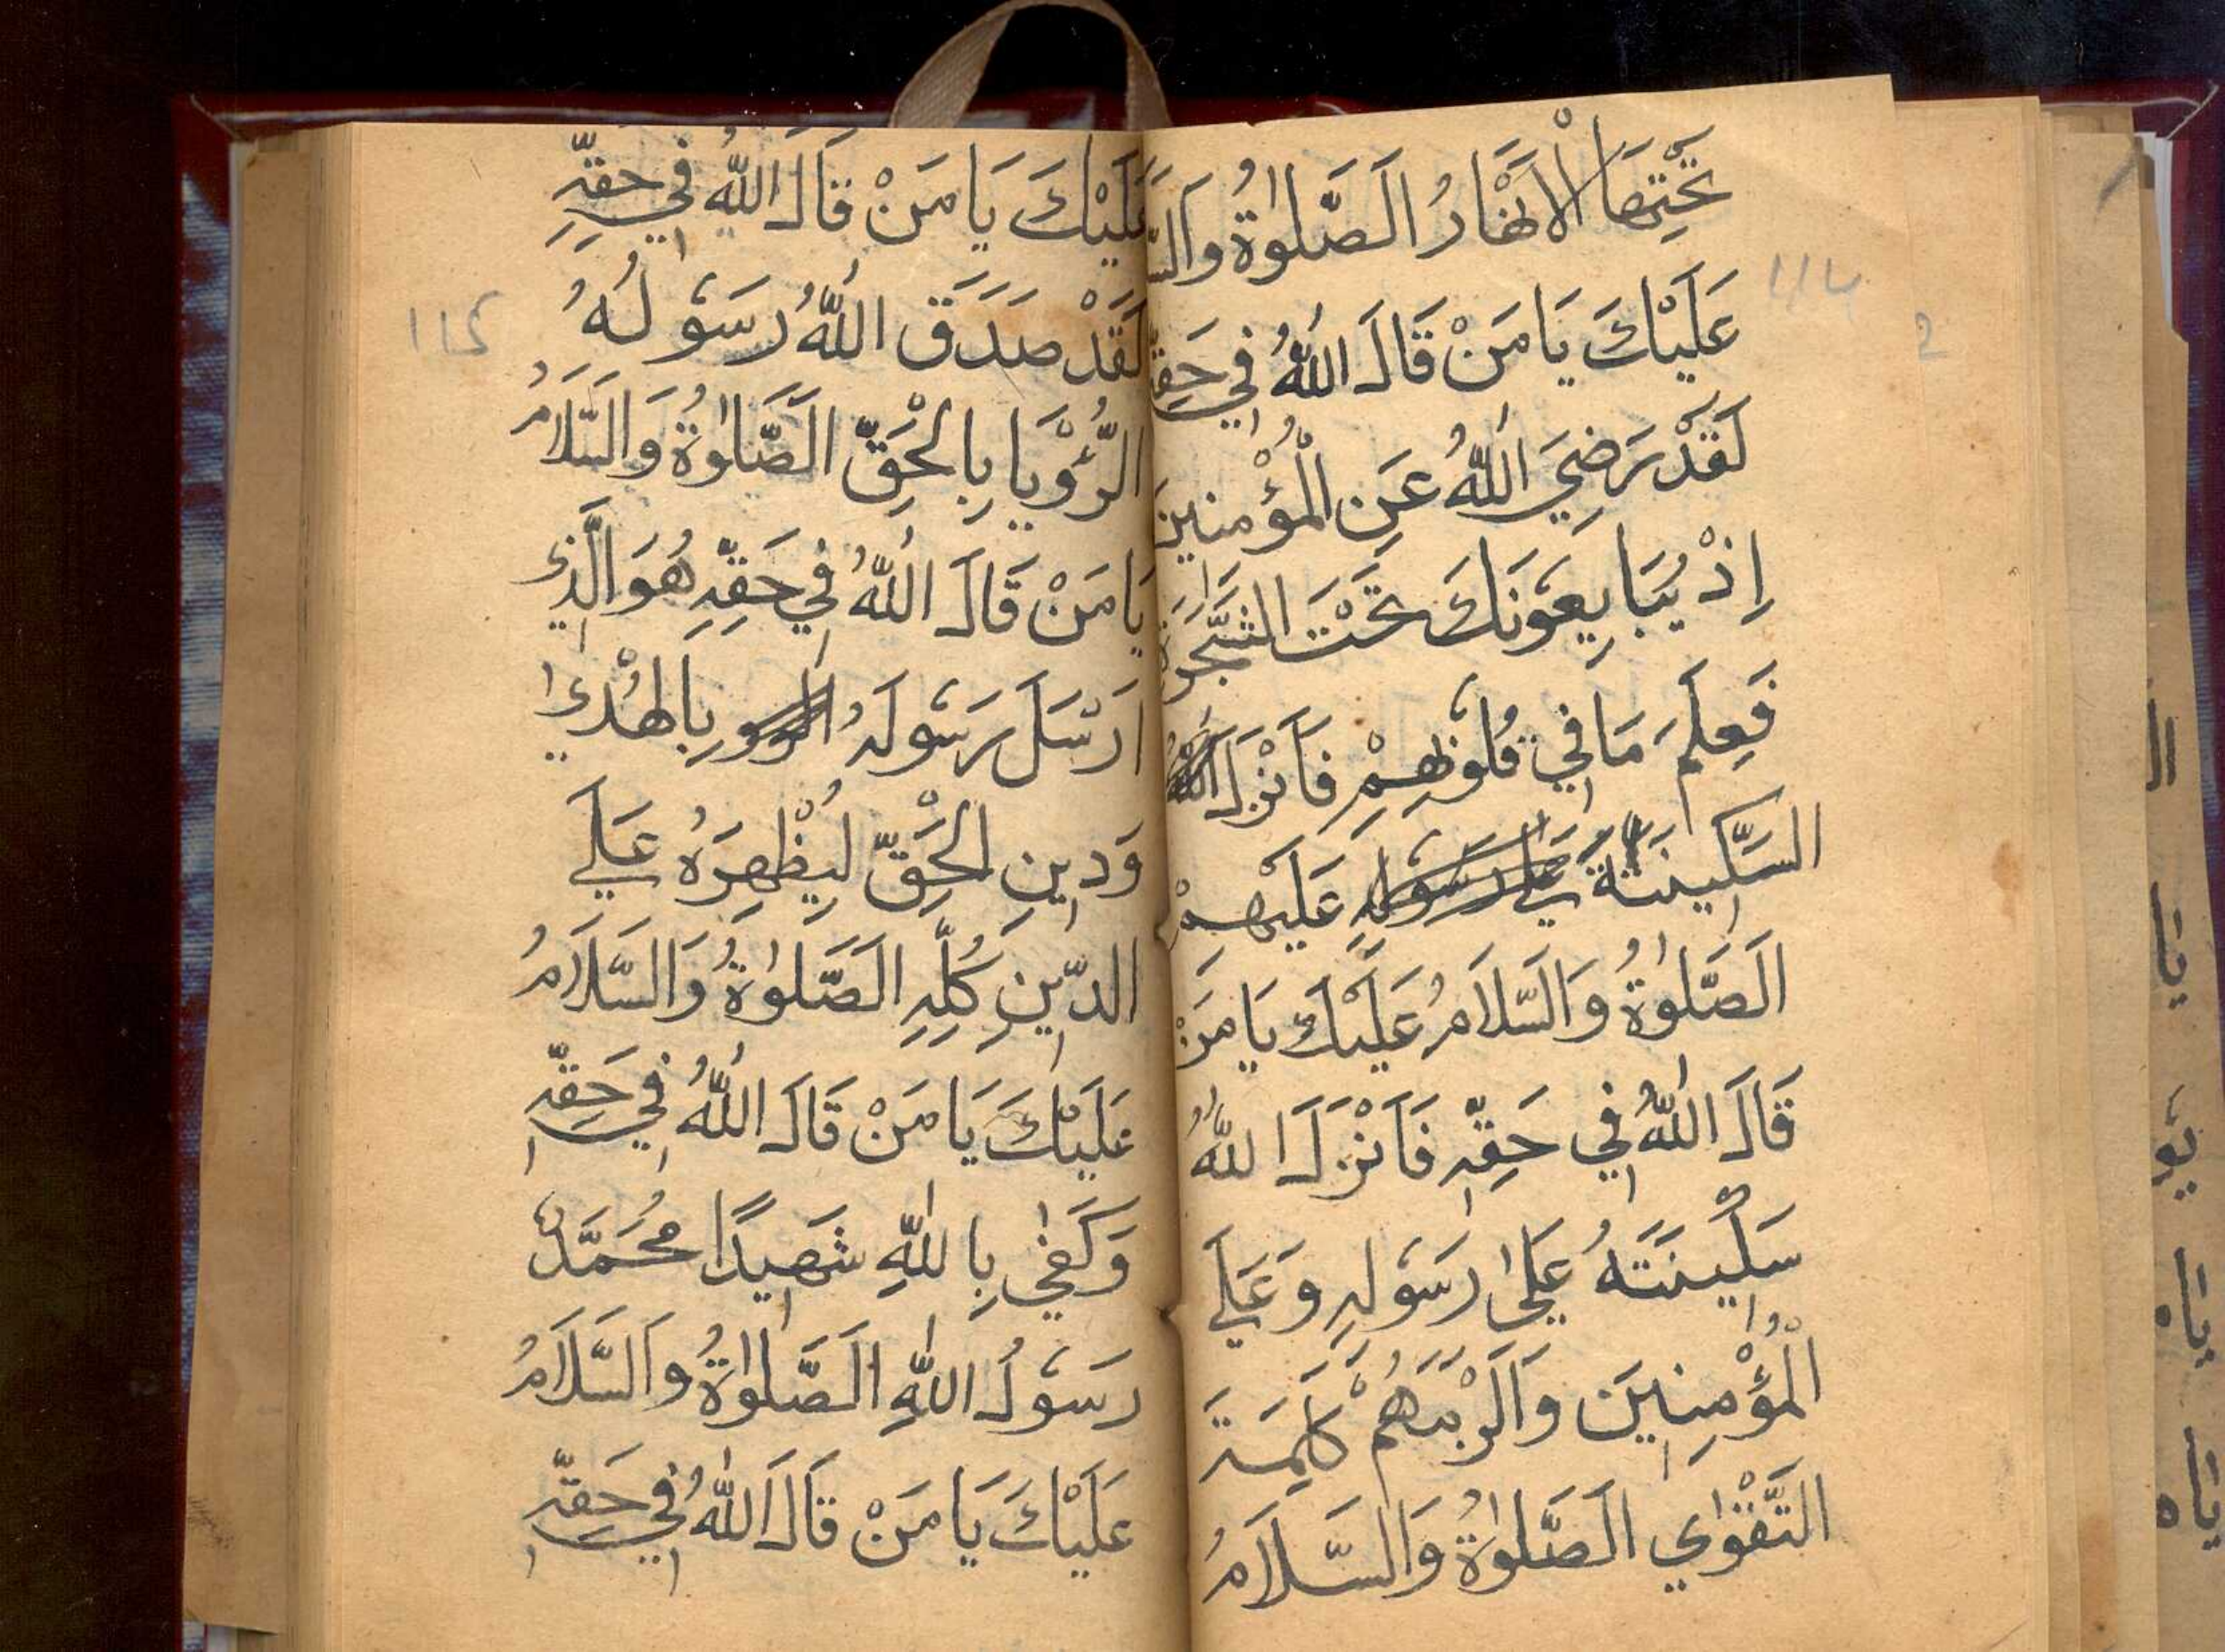 تَحْتِهَا الْاَنْهَارُ اَلصَّلٰوةُ وَالسَّ
عَلَيْكَ يَا مَنْ قَالَ اللّٰهُ فِي حَقِّهِ
لَقَدْ رَضِيَ اللّٰهُ عَنِ الْمُؤْمِنِينَ
اِذْ يُبَايِعُونَكَ تَحْتَ الشَّجَرَةِ
فَعَلِمَ مَا فِي قُلُوبِهِمْ فَاَنْزَلَ
السَّكِينَةَ عَلَيْهِمْ
اَلصَّلٰوةُ وَالسَّلَامُ عَلَيْكَ يَا مَنْ
قَالَ اللّٰهُ فِي حَقِّهِ فَاَنْزَلَ اللّٰهُ
سَكِينَتَهُ عَلٰى رَسُولِهِ وَعَلَي
الْمُؤْمِنِينَ وَاَلْزَمَهُمْ كَلِمَةَ
التَّقْوٰي اَلصَّلٰوةُ وَالسَّلَامُ
عَلَيْكَ يَا مَنْ قَالَ اللّٰهُ فِي حَقِّهِ
لَقَدْ صَدَقَ اللّٰهُ رَسُولَهُ
الرُّؤْيَا بِالْحَقِّ اَلصَّلٰوةُ وَالسَّلَامُ
يَا مَنْ قَالَ اللّٰهُ فِي حَقِّهِ هُوَ الَّذِي
اَرْسَلَ رَسُولَهُ بِالْهُدٰي
وَدِينِ الْحَقِّ لِيُظْهِرَهُ عَلَي
الدِّينِ كُلِّهِ اَلصَّلٰوةُ وَالسَّلَامُ
عَلَيْكَ يَا مَنْ قَالَ اللّٰهُ فِي حَقِّهِ
وَكَفٰي بِاللّٰهِ شَهِيدًا مُحَمَّدٌ
رَسُولُ اللّٰهِ اَلصَّلٰوةُ وَالسَّلَامُ
عَلَيْكَ يَا مَنْ قَالَ اللّٰهُ فِي حَقِّهِ